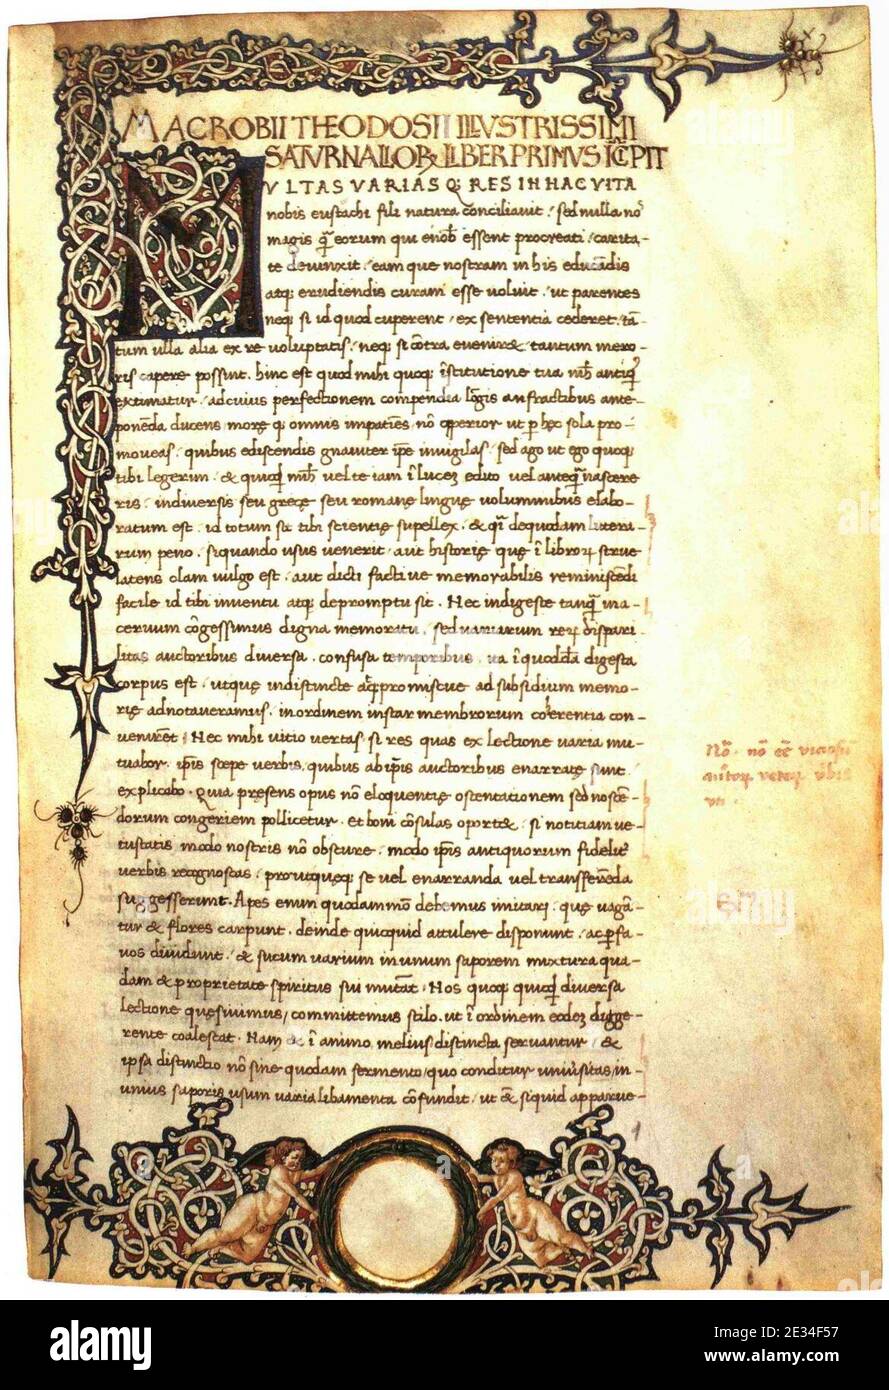 MACROBII THEODOSII ILLVSTRISSIMI
SATVRNALIOR̨ LIBER PRIMVS ĪCIPIT
MVLTAS VARIASQ; RES IN HAC VITA
nobis eustachi fili natura conciliauit. sed nulla nos
magis q̄ eorum qui enob̄ essent procreati, carita-
te deuinxit. eam que nostram in his educādis
atq; erudiendis curam esse uoluit. ut parentes
neq; si id quod cuperent, ex sententia cederet, tā-
tum ulla alia ex re uoluptatis, neq; si cōtra eueniret, tantum mero-
ris capere possint. hinc est quod mihi quoq; īstitutione tua nih̄ antiq̄
extimatur, ad cuius perfectionem compendia lōgis anfractibus ante-
ponēda ducens, moreq; omnis impatiēs, nō opperior ut p hęc sola pro-
moueas, quibus ediscendis gnauiter ip̄e inuigilas. sed ago ut ego quoq;
tibi legerim, & quicq̄d mih̄ uel te iam ī lucez edito uel anteq̄ nascere
ris, in diuersis seu gręcę seu romanę linguę uoluminibus elabo-
ratum est, id totum sit tibi scientię supellex, & q̄i de quodam litterr-
rum peno, siquando usus uenerit, aut historię quę ī libror̨ strue
latens clam uulgo est, aut dicti factiue memorabilis reminiscēdi
facile id tibi inuentu atq; depromptu sit. Nec indigeste tanq̄ in a-
ceruum cōgessimus digna memoratu, sed uariarum rer̨ dispari-
litas auctoribus diuersa, confusa temporibus, ita ī quoddā digesta
corpus est, ut quę indistincte atq; promiscue ad subsidium memo-
rię adnotaueramus, in ordinem instar membrorum coerentia con-
uenirēt. Nec mihi uitio uertas, si res quas ex lectione uaria mu-
tuabor, ip̄is sepe uerbis, quibus ab ip̄is auctoribus enarratę sunt
explicabo. quia pręsens opus nō eloquentię ostentationem sed noscē-
dorum congeriem pollicetur. et boni cōsulas oportet, si notitiam ue-
tustatis modo nostris nō obscure, modo ip̄is antiquorum fidelit
uerbis recognoscas, prout quęq; se uel enarranda uel transferēda
suggesserunt. Apes enim quodammō debemus imitari, quę uagā-
tur & flores carpunt, deinde quicquid attulere disponunt, ac p fa-
uos diuidunt, & sucum uarium in unum saporem mixtura qua-
dam & proprietate spiritus sui mutāt. Nos quoq; quicq̄d diuersa
lectione quęsiuimus, committemus stilo, ut ī ordinem eodez digge-
rente coalescat. Nam & ī animo melius distincta seruantur, &
ipsa distinctio nō sine quodam fermento, quo conditur uniuersitas, in
unius saporis usum uaria libamenta cōfundit, ut &̄ siquid apparue-
1
alamy
Image ID: 2E34F57
www.alamy.com